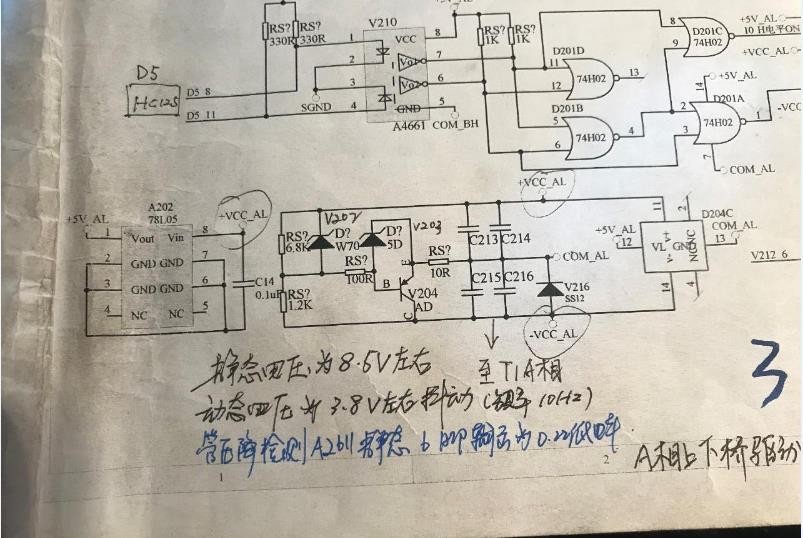 V210
+5V_AL
RS? 330R
RS? 330R
1 VCC 8
RS? 1K
RS? 1K
D201C
74H02
8
9
10 H电平ON
+5V_AL
+VCC_AL
D5
HC125
D5_8
D5_11
2 Vo1 7
3 Vo2 6
4 GND 5
SGND
A4661
COM_BH
D201D
11
12
13
74H02
D201B
5
6
4
74H02
+5V_AL
14
D201A
2
3
1
74H02
7
COM_AL
-VCC
A202
78L05
+5V_AL
+VCC_AL
1 Vout Vin 8
2 GND GND 7
3 GND GND 6
4 NC NC 5
C14
0.1uF
RS? 6.8K
RS? 1.2K
V202
D? W70
V203
D? 5D
RS? 100R
B
E
C
V204
AD
RS? 10R
C213 C214
C215 C216
+VCC_AL
COM_AL
V216
SS12
-VCC_AL
D204C
+5V_AL
12
11
2
VL V+ GND
V- NC NC
COM_AL
13
14
4
V212_6
静态电压为8.5V左右
至T1A相
动态电压为3.8V左右抖动(频率10Hz)
管压降检测A2611静态6脚输出为0.22
3
A相上下桥驱动
1
2